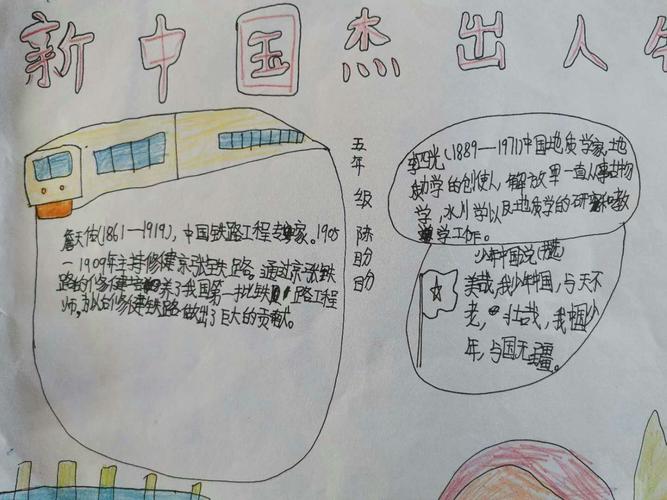 新中国杰出人
詹天佑(1861—1919),中国铁路工程专家。1905
—1909年主持修建京张铁路。通过京张铁
路的修建培养了我国第一批铁路工程
师,为的修建铁路做出了巨大的贡献。
五年级陈盼盼
李四光(1889—1971)中国地质学家,地
质力学的创使人,解放里一直从事古物
学,冰川学以及地质学的研究和教
学工作。
少年中国说
美哉,我少年中国,与天不
老,壮哉,我中国少
年,与国无疆。